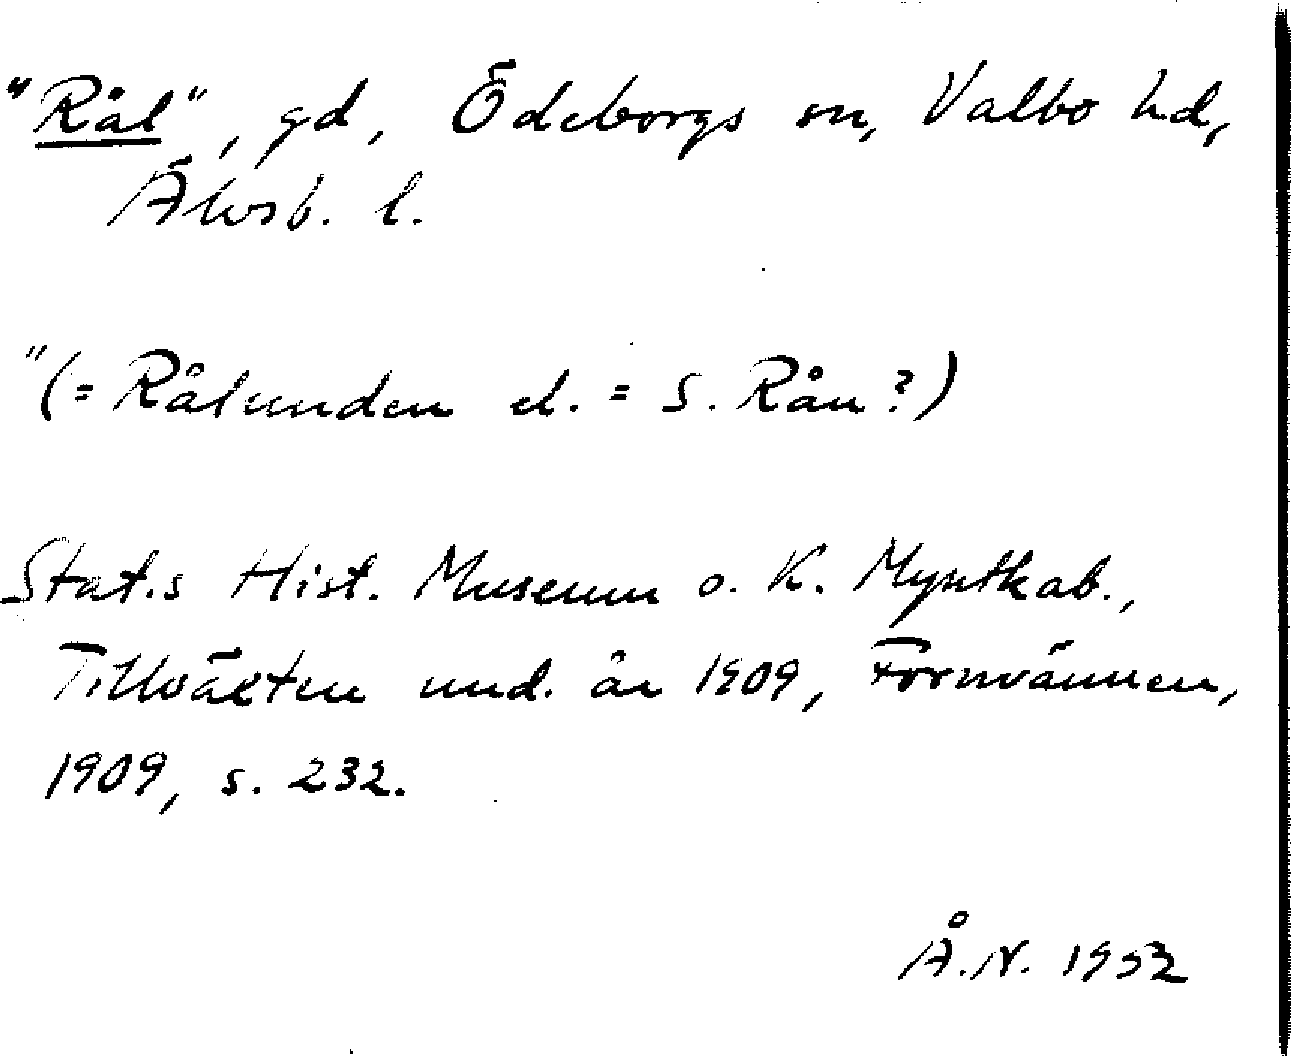 "Rål", gd, Ödeborgs sn, Valbo hd,
Älvsb. l.
"(= Rålunden el. = S. Rån ?)
Stat.s Hist. Museum o. K. Myntkab.,
Tillväxten und. år 1909, Fornvännen,
1909, s. 232.
Å.N. 1952